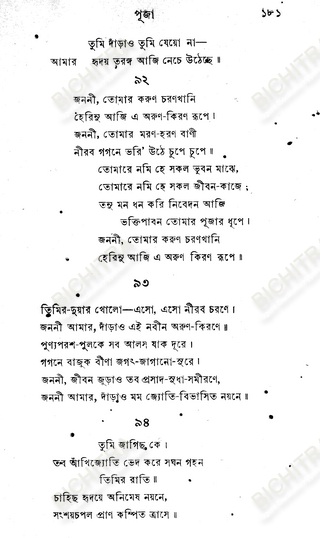 পূজা ১৮১
তুমি দাঁড়াও তুমি যেয়ো না—
আমার হৃদয় তরঙ্গ আজি নেচে উঠেছে ॥
৯২
জননী, তোমার করুণ চরণখানি
হেরিনু আজি এ অরুণ-কিরণ রূপে।
জননী, তোমার মরণ-হরণ বাণী
নীরব গগনে ভরি' উঠে চুপে চুপে ॥
তোমারে নমি হে সকল ভুবন মাঝে,
তোমারে নমি হে সকল জীবন-কাজে;
তনু মন ধন করি নিবেদন আজি
ভক্তিপাবন তোমার পূজার ধূপে।
জননী, তোমার করুণ চরণখানি
হেরিনু আজি এ অরুণ কিরণ রূপে ॥
৯৩
তিমির-দুয়ার খোলো—এসো, এসো নীরব চরণে।
জননী আমার, দাঁড়াও এই নবীন অরুণ-কিরণে ॥
পুণ্যপরশ-পুলকে সব আলস যাক দূরে।
গগনে বাজুক বীণা জগৎ-জাগানো-সুরে।
জননী, জীবন জুড়াও তব প্রসাদ-সুধা-সমীরণে,
জননী আমার, দাঁড়াও মম জ্যোতি-বিভাসিত নয়নে ॥
৯৪
তুমি জাগিছ কে।
তব আঁখিজ্যোতি ভেদ করে সঘন গহন
তিমির রাতি ॥
চাহিছ হৃদয়ে অনিমেষ নয়নে,
সংশয়চপল প্রাণ কম্পিত ত্রাসে ॥
BICHITRA